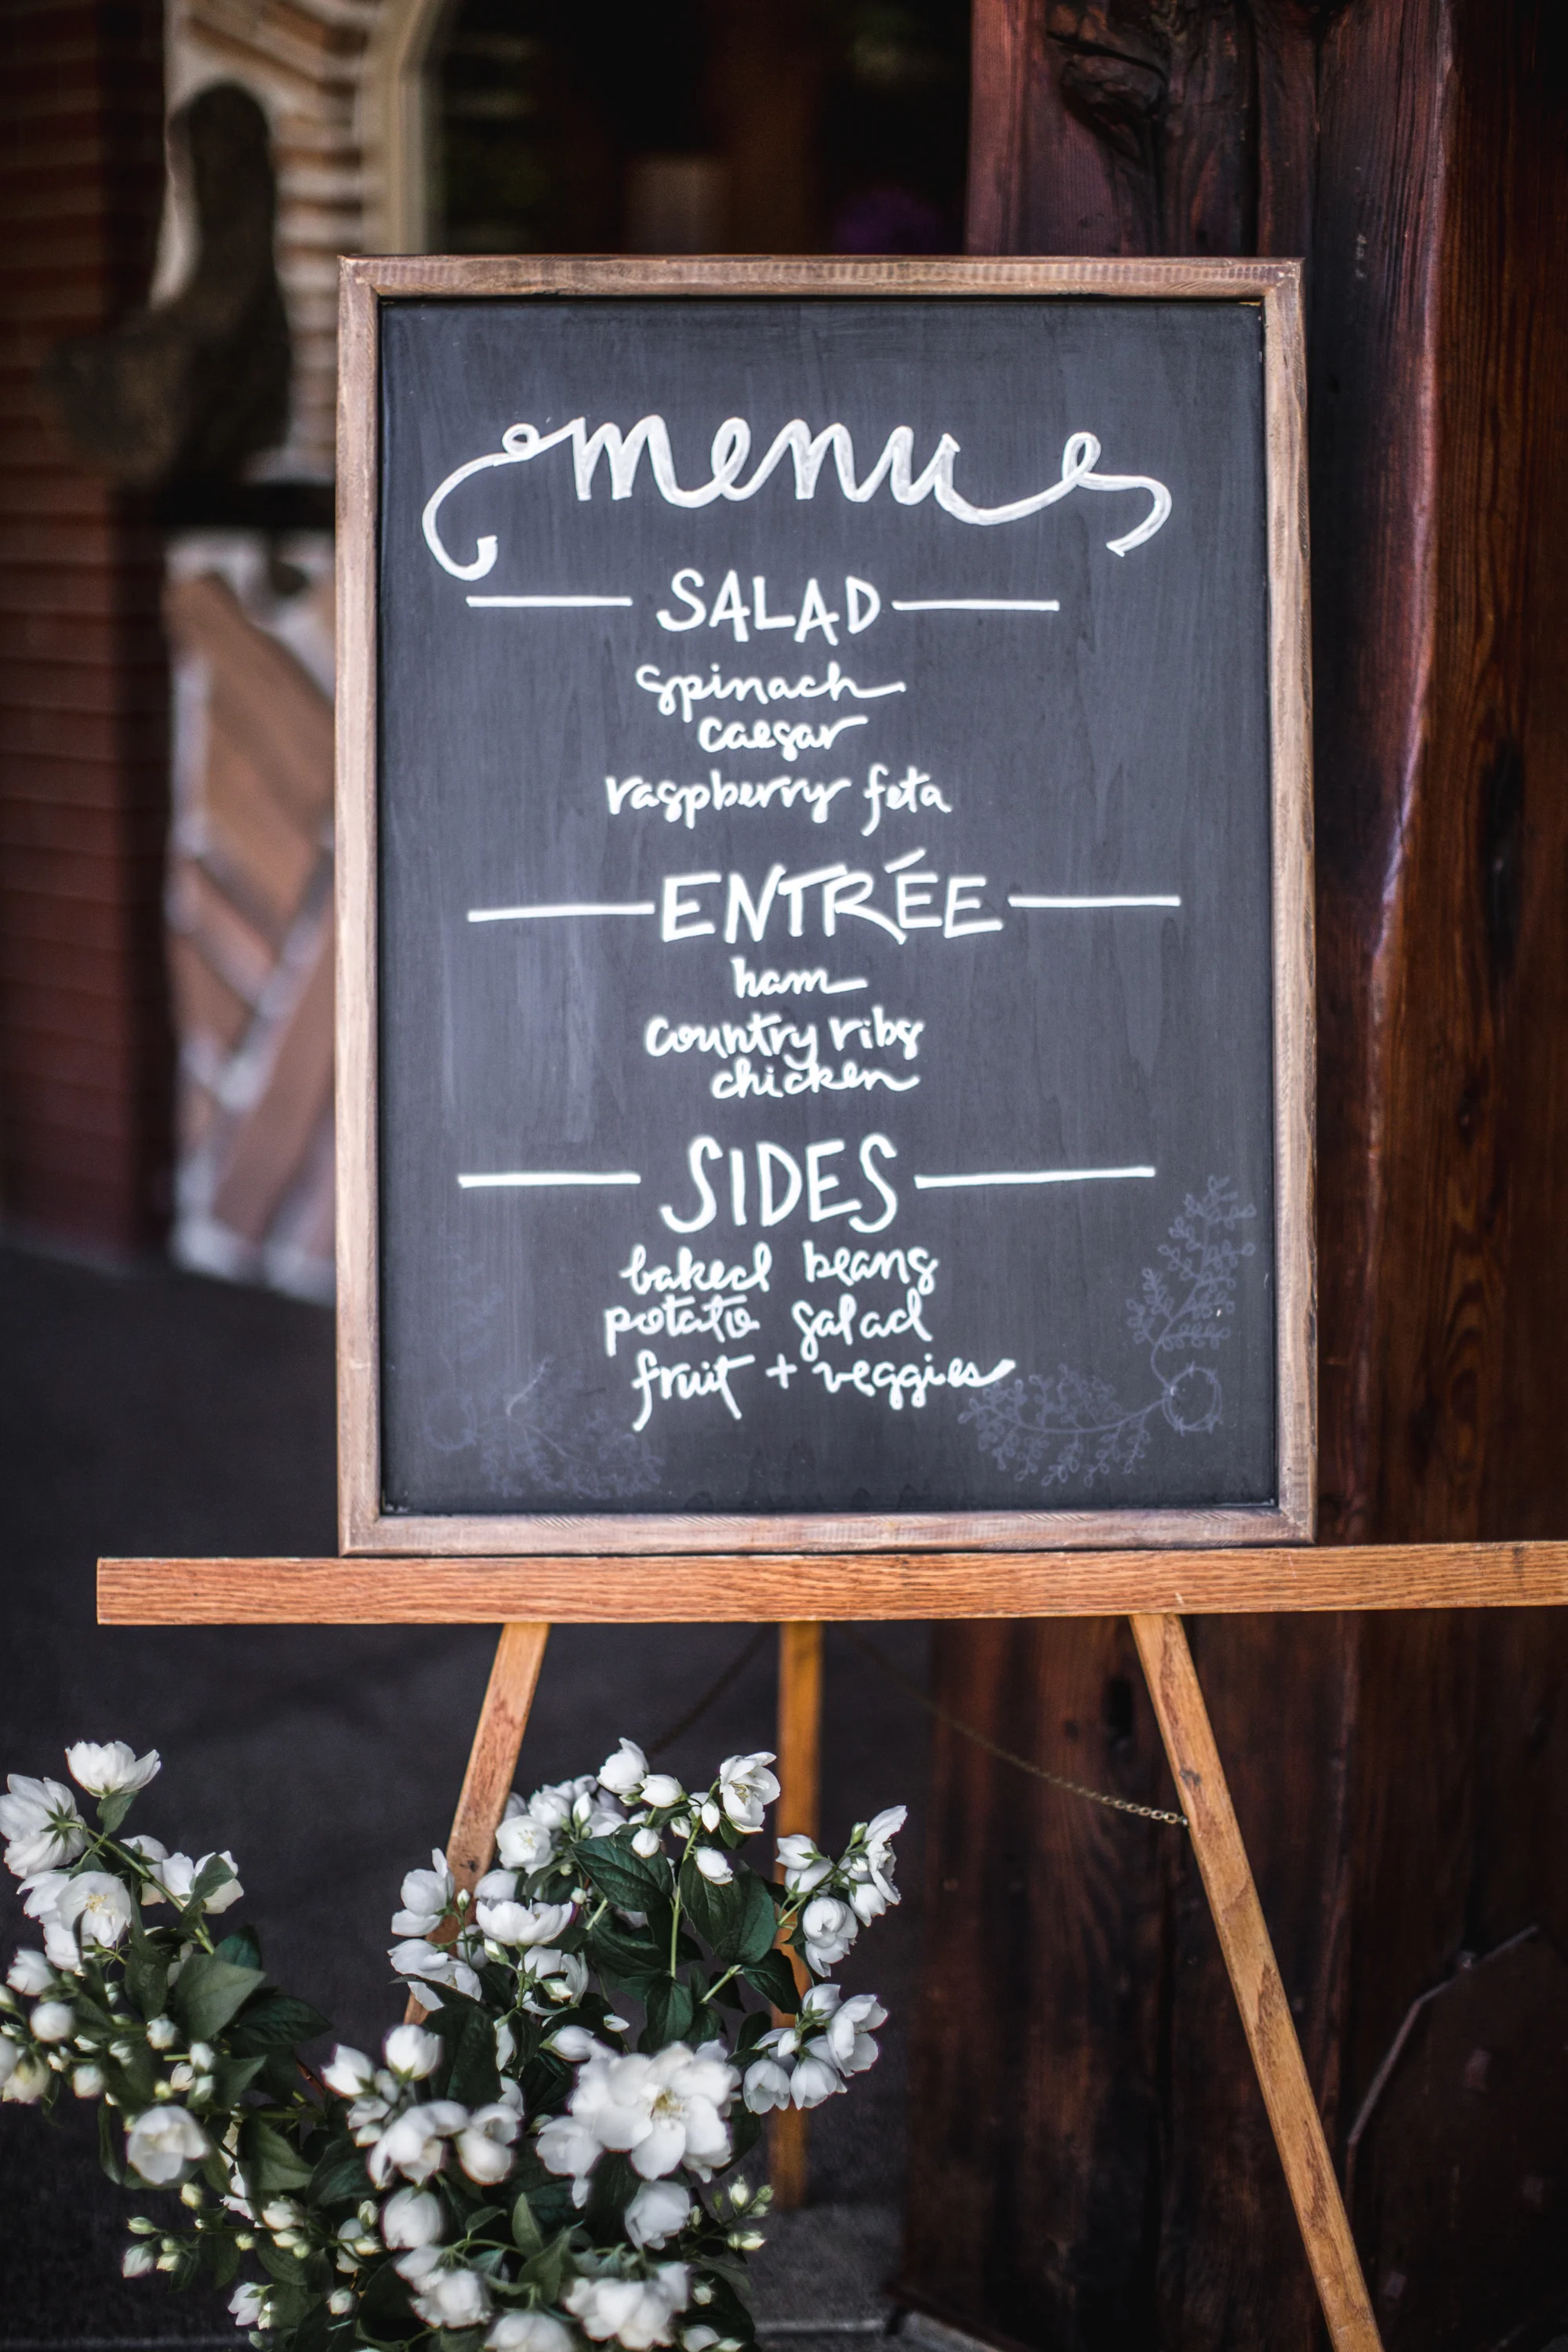 menu
SALAD
spinach
caesar
raspberry feta
ENTRÉE
ham
country ribs
chicken
SIDES
baked beans
potato salad
fruit + veggies